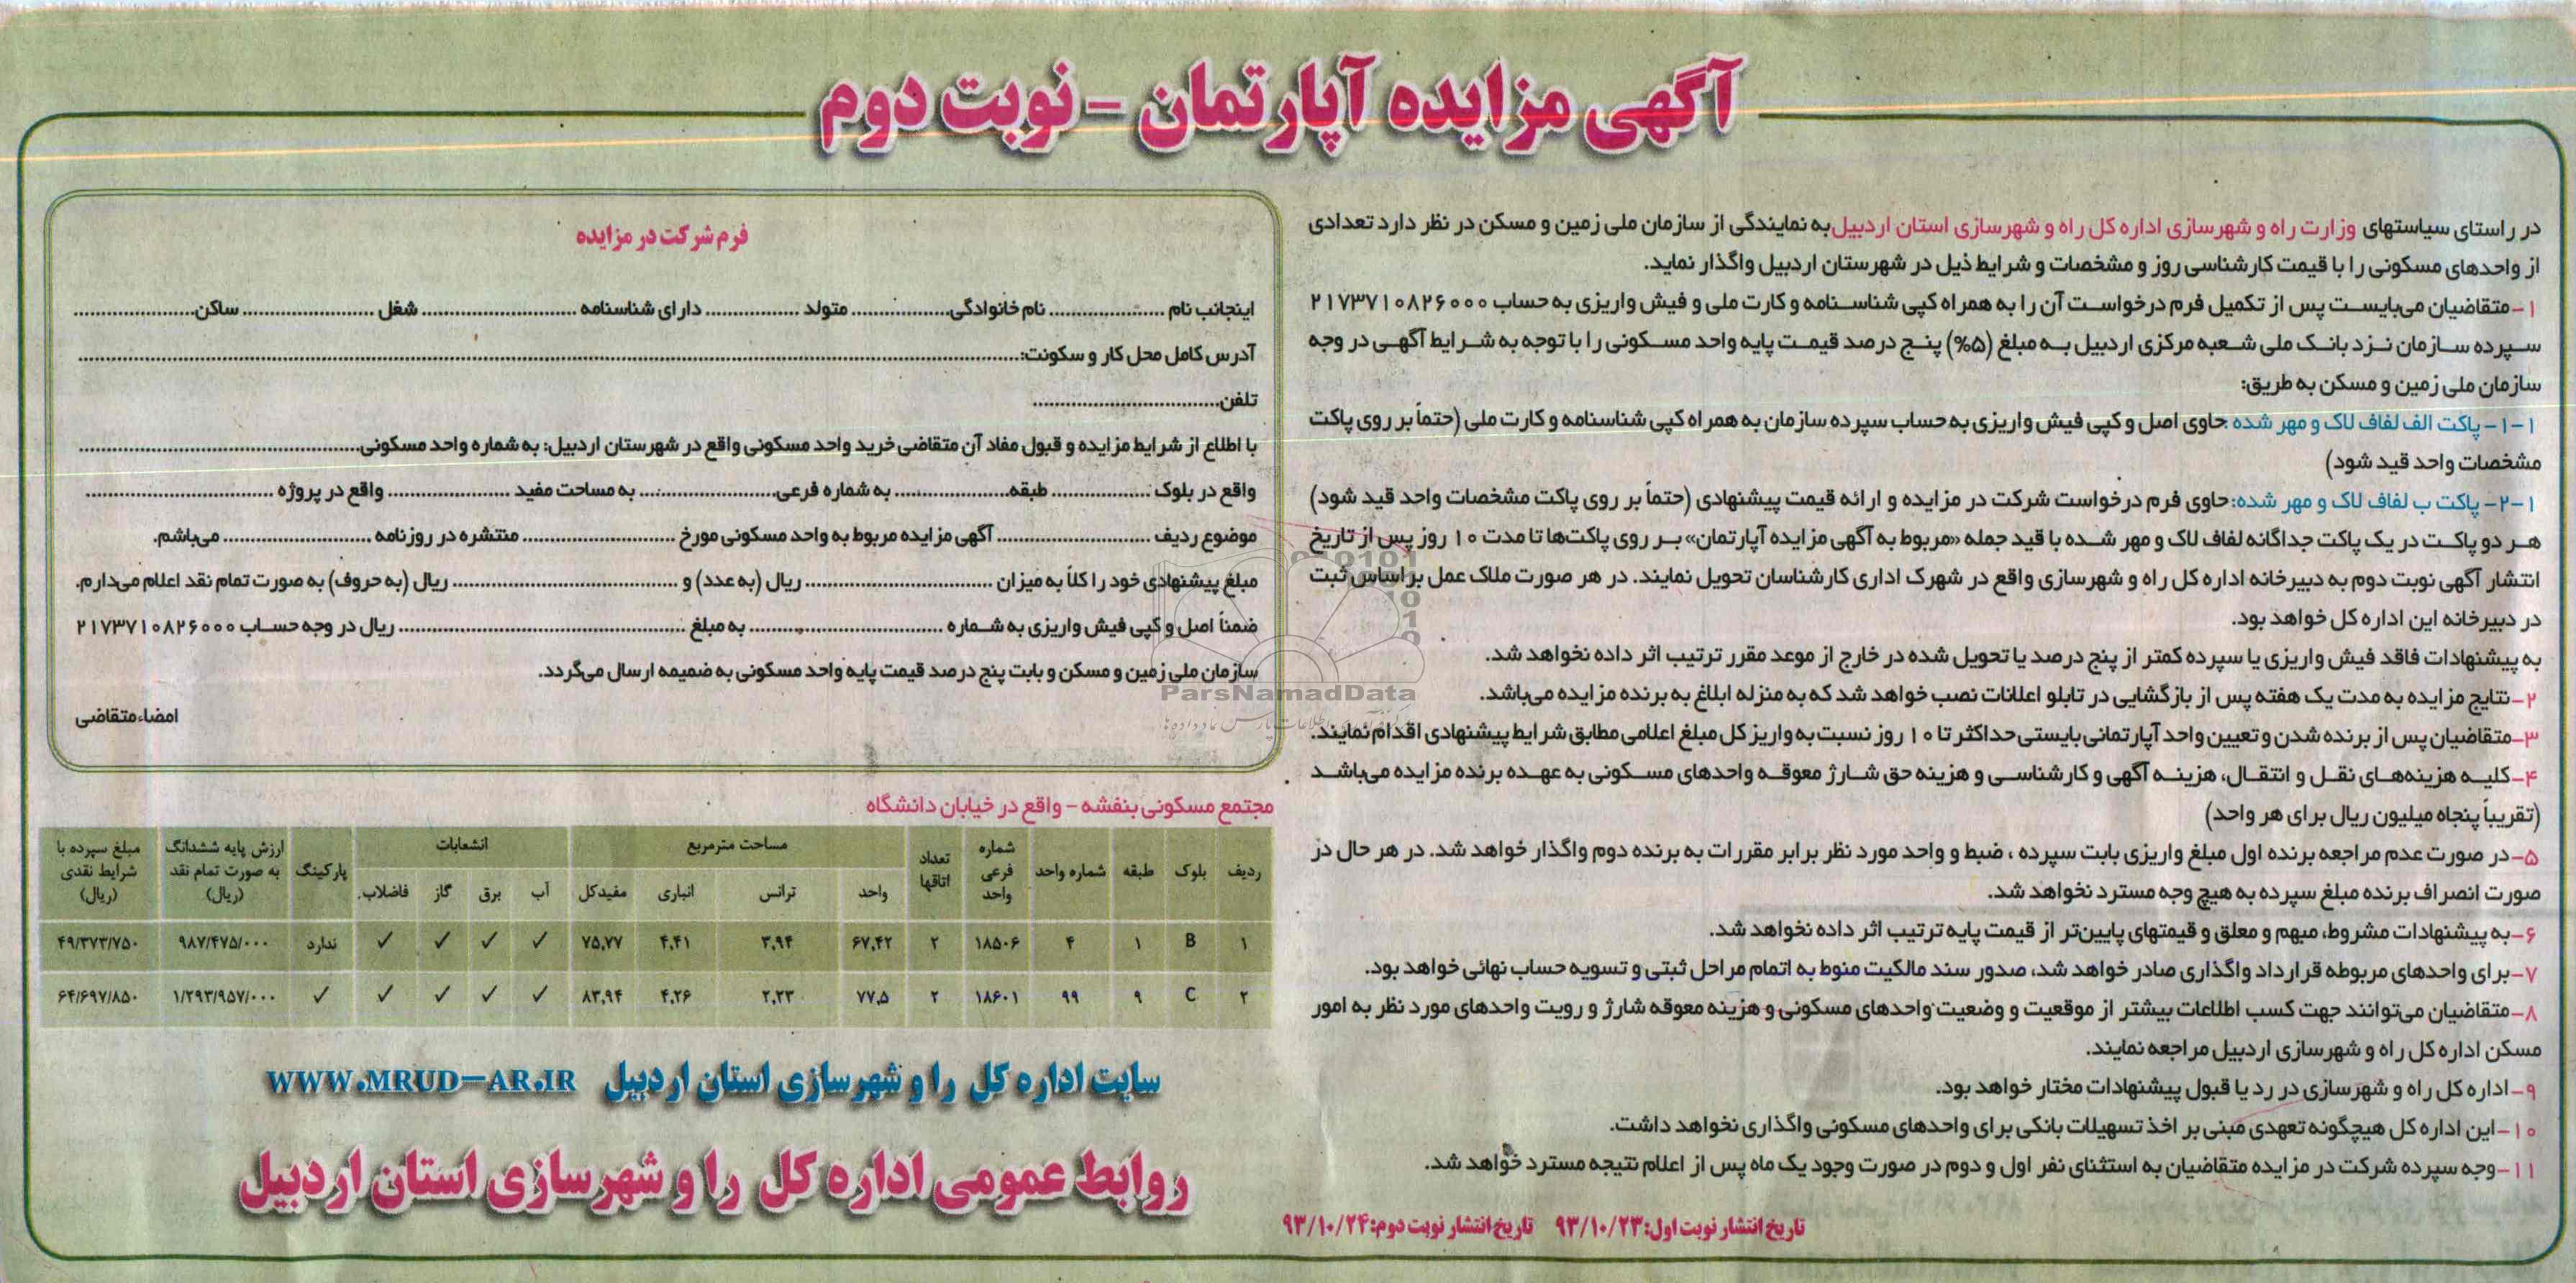 آگهی مزایده آپارتمان - نوبت دوم
در راستای سیاستهای وزارت راه و شهرسازی اداره کل راه و شهرسازی استان اردبیل به نمایندگی از سازمان ملی زمین و مسکن در نظر دارد تعدادی
از واحدهای مسکونی را با قیمت کارشناسی روز و مشخصات و شرایط ذیل در شهرستان اردبیل واگذار نماید.
۱- متقاضیان می‌بایست پس از تکمیل فرم درخواست آن را به همراه کپی شناسنامه و کارت ملی و فیش واریزی به حساب ۲۱۷۳۷۱۰۸۲۶۰۰۰
سپرده سازمان نزد بانک ملی شعبه مرکزی اردبیل به مبلغ (۵%) پنج درصد قیمت پایه واحد مسکونی را با توجه به شرایط آگهی در وجه
سازمان ملی زمین و مسکن به طریق:
۱-۱- پاکت الف لفاف لاک و مهر شده :حاوی اصل و کپی فیش واریزی به حساب سپرده سازمان به همراه کپی شناسنامه و کارت ملی (حتماً بر روی پاکت
مشخصات واحد قید شود)
۱-۲- پاکت ب لفاف لاک و مهر شده:حاوی فرم درخواست شرکت در مزایده و ارائه قیمت پیشنهادی (حتماً بر روی پاکت مشخصات واحد قید شود)
هر دو پاکت در یک پاکت جداگانه لفاف لاک و مهر شده با قید جمله «مربوط به آگهی مزایده آپارتمان» بر روی پاکت‌ها تا مدت ۱۰ روز پس از تاریخ
انتشار آگهی نوبت دوم به دبیرخانه اداره کل راه و شهرسازی واقع در شهرک اداری کارشناسان تحویل نمایند. در هر صورت ملاک عمل براساس ثبت
در دبیرخانه این اداره کل خواهد بود.
به پیشنهادات فاقد فیش واریزی یا سپرده کمتر از پنج درصد یا تحویل شده در خارج از موعد مقرر ترتیب اثر داده نخواهد شد.
۲- نتایج مزایده به مدت یک هفته پس از بازگشایی در تابلو اعلانات نصب خواهد شد که به منزله ابلاغ به برنده مزایده می‌باشد.
۳- متقاضیان پس از برنده شدن و تعیین واحد آپارتمانی بایستی حداکثر تا ۱۰ روز نسبت به واریز کل مبلغ اعلامی مطابق شرایط پیشنهادی اقدام نمایند.
۴- کلیه هزینه‌های نقل و انتقال، هزینه آگهی و کارشناسی و هزینه حق شارژ معوقه واحدهای مسکونی به عهده برنده مزایده می‌باشد
(تقریباً پنجاه میلیون ریال برای هر واحد)
۵- در صورت عدم مراجعه برنده اول مبلغ واریزی بابت سپرده ، ضبط و واحد مورد نظر برابر مقررات به برنده دوم واگذار خواهد شد. در هر حال در
صورت انصراف برنده مبلغ سپرده به هیچ وجه مسترد نخواهد شد.
۶- به پیشنهادات مشروط، مبهم و معلق و قیمتهای پایین‌تر از قیمت پایه ترتیب اثر داده نخواهد شد.
۷- برای واحدهای مربوطه قرارداد واگذاری صادر خواهد شد، صدور سند مالکیت منوط به اتمام مراحل ثبتی و تسویه حساب نهائی خواهد بود.
۸- متقاضیان می‌توانند جهت کسب اطلاعات بیشتر از موقعیت و وضعیت واحدهای مسکونی و هزینه معوقه شارژ و رویت واحدهای مورد نظر به امور
مسکن اداره کل راه و شهرسازی اردبیل مراجعه نمایند.
۹- اداره کل راه و شهرسازی در رد یا قبول پیشنهادات مختار خواهد بود.
۱۰- این اداره کل هیچگونه تعهدی مبنی بر اخذ تسهیلات بانکی برای واحدهای مسکونی واگذاری نخواهد داشت.
۱۱- وجه سپرده شرکت در مزایده متقاضیان به استثنای نفر اول و دوم در صورت وجود یک ماه پس از اعلام نتیجه مسترد خواهد شد.
تاریخ انتشار نوبت اول: ۹۳/۱۰/۲۳ تاریخ انتشار نوبت دوم: ۹۳/۱۰/۲۴
فرم شرکت در مزایده
اینجانب نام .................... نام خانوادگی.................... متولد .................. دارای شناسنامه .............................. شغل ......................... ساکن.......................
آدرس کامل محل کار و سکونت:....................................................................................
تلفن.....................................
با اطلاع از شرایط مزایده و قبول مفاد آن متقاضی خرید واحد مسکونی واقع در شهرستان اردبیل: به شماره واحد مسکونی..................................................
واقع در بلوک .................. طبقه...................... به شماره فرعی........................ به مساحت مفید ........................ واقع در پروژه ....................................
موضوع ردیف .............................. آگهی مزایده مربوط به واحد مسکونی مورخ ............................. منتشره در روزنامه ............................ می‌باشم.
مبلغ پیشنهادی خود را کلاً به میزان .................................... ریال (به عدد) و ........................................... ریال (به حروف) به صورت تمام نقد اعلام می‌دارم.
ضمناً اصل و کپی فیش واریزی به شماره .................................... به مبلغ ..................................................... ریال در وجه حساب ۲۱۷۳۷۱۰۸۲۶۰۰۰
سازمان ملی زمین و مسکن و بابت پنج درصد قیمت پایه واحد مسکونی به ضمیمه ارسال می‌گردد.
امضاء متقاضی
مجتمع مسکونی بنفشه - واقع در خیابان دانشگاه
ردیف بلوک طبقه شماره واحد شماره فرعی واحد تعداد اتاقها مساحت مترمربع انشعابات پارکینگ ارزش پایه ششدانگ به صورت تمام نقد (ریال) مبلغ سپرده با شرایط نقدی (ریال)
واحد تراس انباری مفیدکل آب برق گاز فاضلاب
۱ B ۱ ۴ ۱۸۵۰۶ ۲ ۶۷,۴۲ ۳,۹۴ ۴,۴۱ ۷۵,۷۷ ✓ ✓ ✓ ✓ ندارد ۹۸۷/۴۷۵/۰۰۰ ۴۹/۳۷۳/۷۵۰
۲ C ۹ ۹۹ ۱۸۶۰۱ ۲ ۷۷,۵ ۲,۲۳ ۴,۲۶ ۸۳,۹۴ ✓ ✓ ✓ ✓ ✓ ۱/۲۹۳/۹۵۷/۰۰۰ ۶۴/۶۹۷/۸۵۰
سایت اداره کل را و شهرسازی استان اردبیل WWW.MRUD-AR.IR
روابط عمومی اداره کل را و شهرسازی استان اردبیل
ParsNamadData